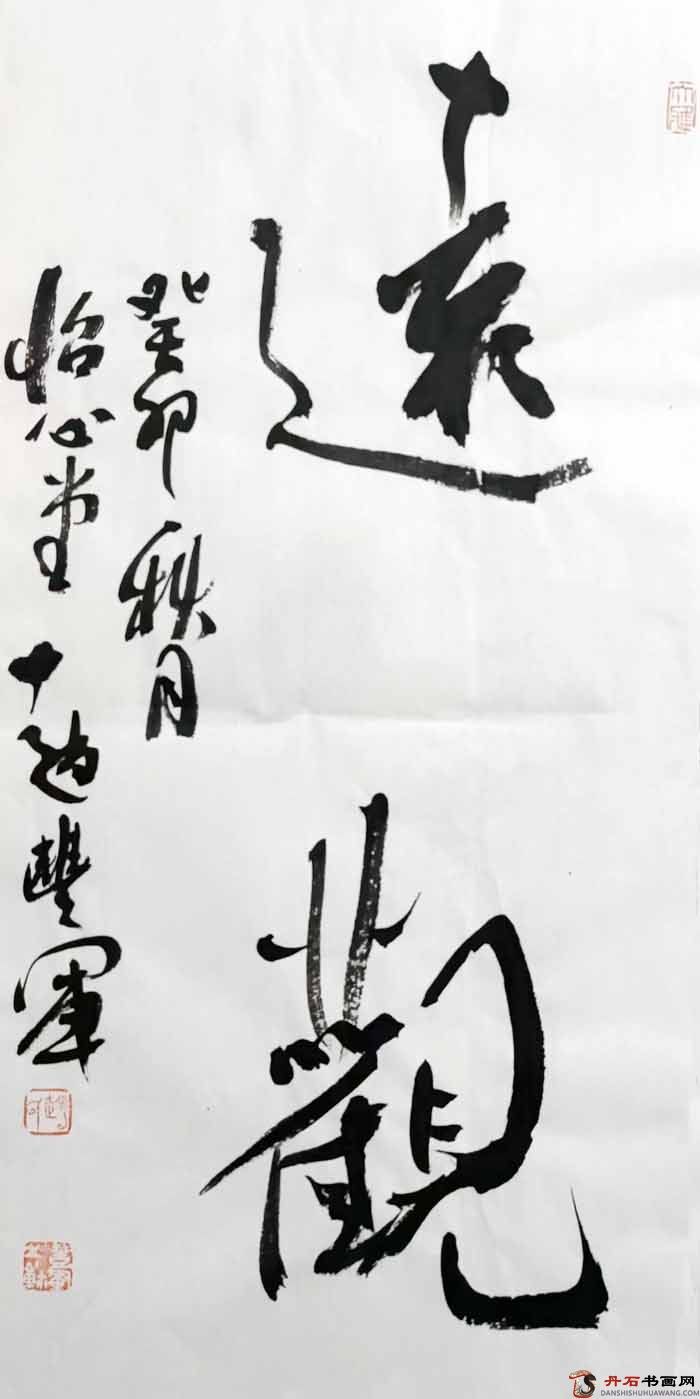 遠觀
癸卯秋月
怡心堂趙豐軍
丹石书画网
DANSHISHUHUAWANG.COM